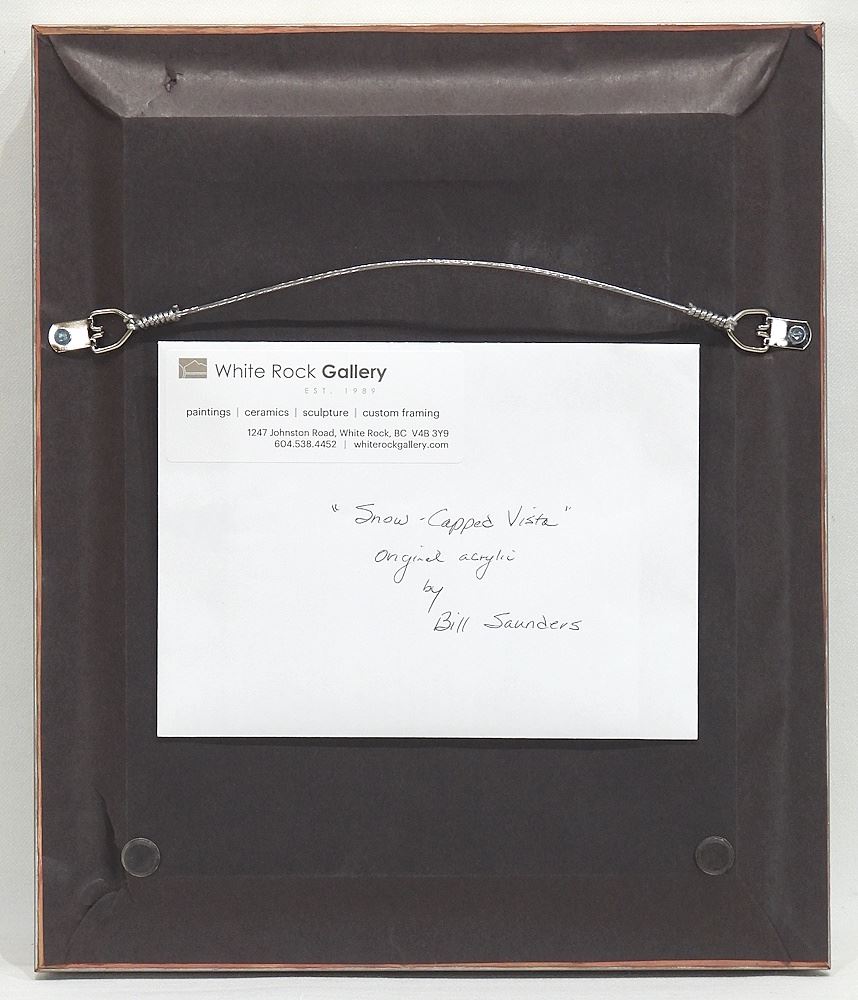 White Rock Gallery
EST. 1989
paintings | ceramics | sculpture | custom framing
1247 Johnston Road, White Rock, BC V4B 3Y9
604.538.4452 | whiterockgallery.com
"Snow-Capped Vista"
original acrylic
by
Bill Saunders